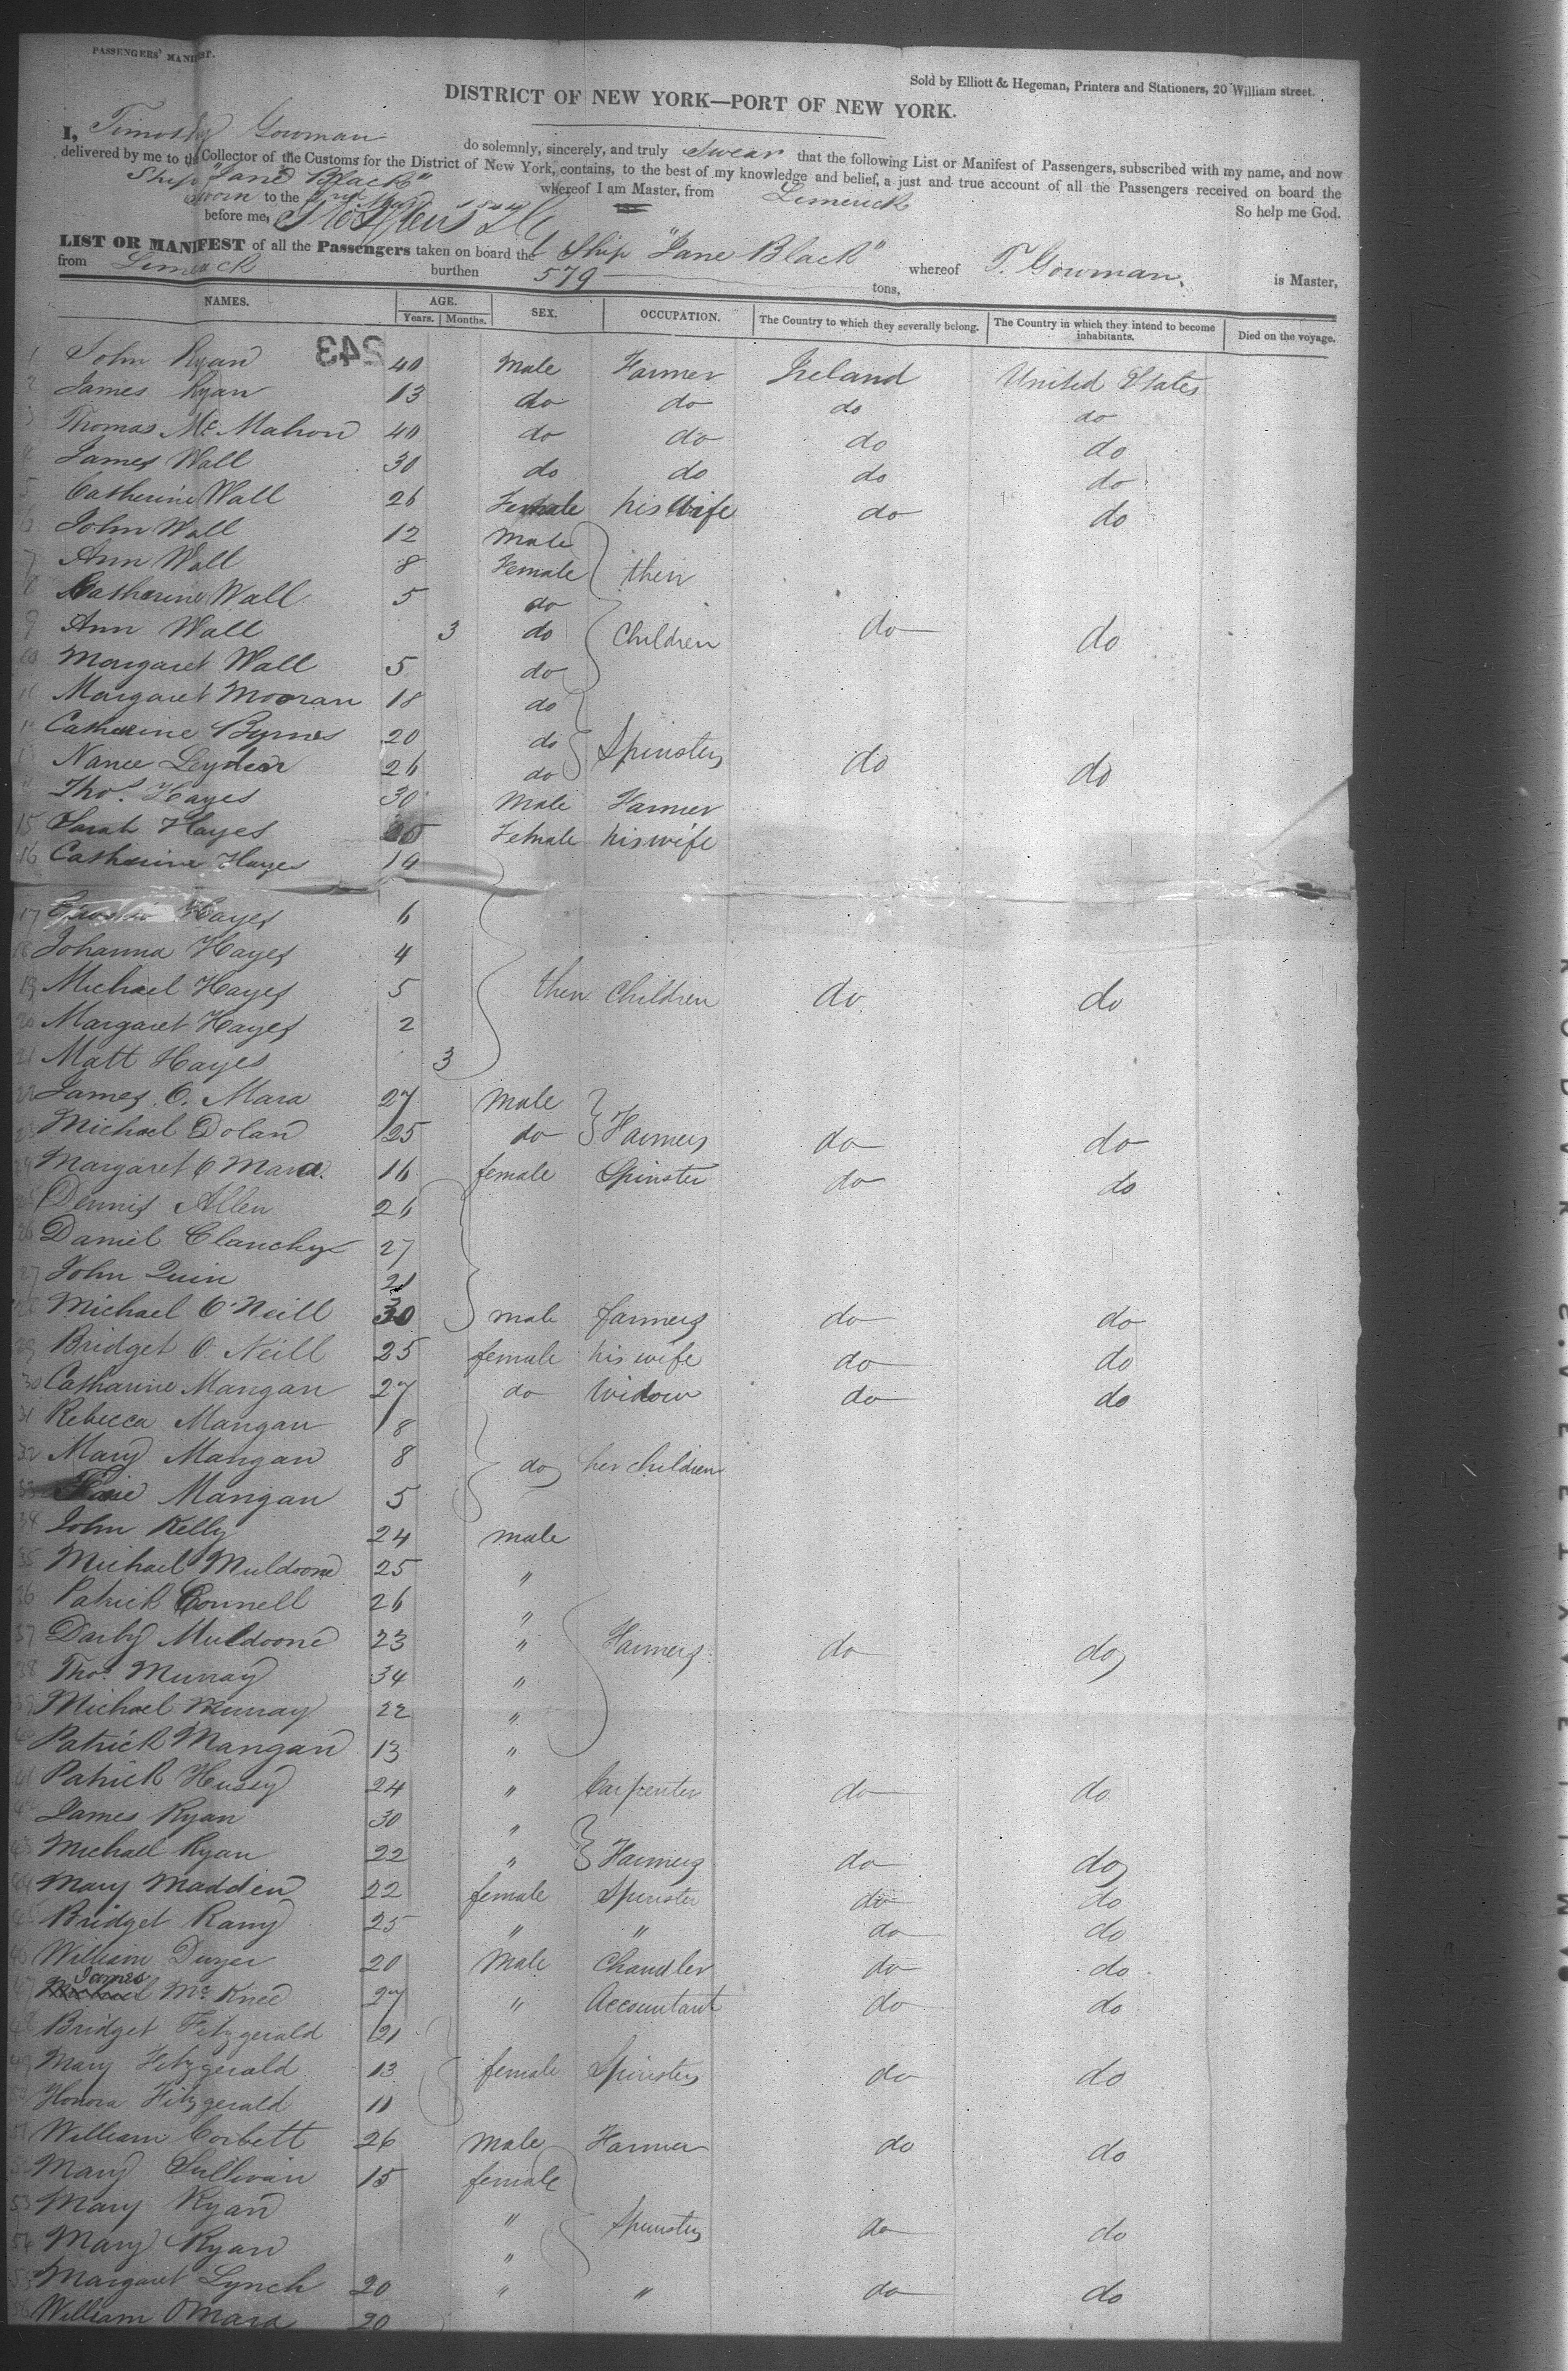 PASSENGERS' MANIFEST.
Sold by Elliott & Hegeman, Printers and Stationers, 20 William street.
DISTRICT OF NEW YORK—PORT OF NEW YORK.
I, Timothy Gowman do solemnly, sincerely, and truly Swear that the following List or Manifest of Passengers, subscribed with my name, and now
delivered by me to the Collector of the Customs for the District of New York, contains, to the best of my knowledge and belief, a just and true account of all the Passengers received on board the
Ship "Jane Black" whereof I am Master, from Limerick
Sworn to the So help me God.
before me,
LIST OR MANIFEST of all the Passengers taken on board the Ship "Jane Black" whereof T. Gowman. is Master,
from Limerick burthen 579 tons,
NAMES. AGE. SEX. OCCUPATION. The Country to which they severally belong. The Country in which they intend to become inhabitants. Died on the voyage.
Years. Months.
243
1 John Ryan 40 Male Farmer Ireland United States
2 James Ryan 13 do do do do
3 Thomas Mc Mahon 40 do do do do
4 James Wall 30 do do do do
5 Catherine Wall 26 Female his Wife do do
6 John Wall 12 Male
7 Ann Wall 8 Female their
8 Catherine Wall 5 do
9 Ann Wall 3 do Children do do
10 Margaret Wall 5 do
11 Margaret Mooran 18 do
12 Catherine Byrnes 20 do Spinsters do do
13 Nance Leyden 26 do
14 Thos. Hayes 30 Male Farmer
15 Sarah Hayes Female his wife
16 Catherine Hayes 14
17 Hayes 6
18 Johanna Hayes 4
19 Michael Hayes 5 their Children do do
20 Margaret Hayes 2
21 Matt Hayes 3
22 James O. Mara 27 Male
23 Michael Dolan 25 do Farmers do do
24 Margaret O Mara. 16 female Spinster do do
25 Dennis Allen 26
26 Daniel Clanchy 27
27 John Quin 21
28 Michael O'Neill 30 male farmers do do
29 Bridget O. Neill 25 female his wife do do
30 Catharine Mangan 27 do Widow do do
31 Rebecca Mangan 8
32 Mary Mangan 8 do her children
33 Mangan 5
34 John Kelly 24 male
35 Michael Muldoone 25 "
36 Patrick Connell 26 "
37 Darby Muldoone 23 " Farmers do do
38 Thos. Murray 34 "
39 Michael Murray 22 "
40 Patrick Mangan 13 "
41 Patrick Hussy 24 " Carpenter do do
42 James Ryan 30 "
43 Michael Ryan 22 " Farmers do do
44 Mary Madden 22 female Spinster do do
45 Bridget Ramy 25 " " do do
46 William Dwyer 20 Male Chandler do do
James
47 Michael Mc Knee 27 " Accountant do do
48 Bridget Fitzgerald 21
49 Mary Fitzgerald 13 female Spinsters do do
50 Honora Fitzgerald 11
51 William Corbett 26 Male Farmer do do
52 Mary Sullivan 15 female
53 Mary Ryan " Spinsters do do
54 Mary Ryan "
55 Margaret Lynch 20 " " do do
56 William OMara 20